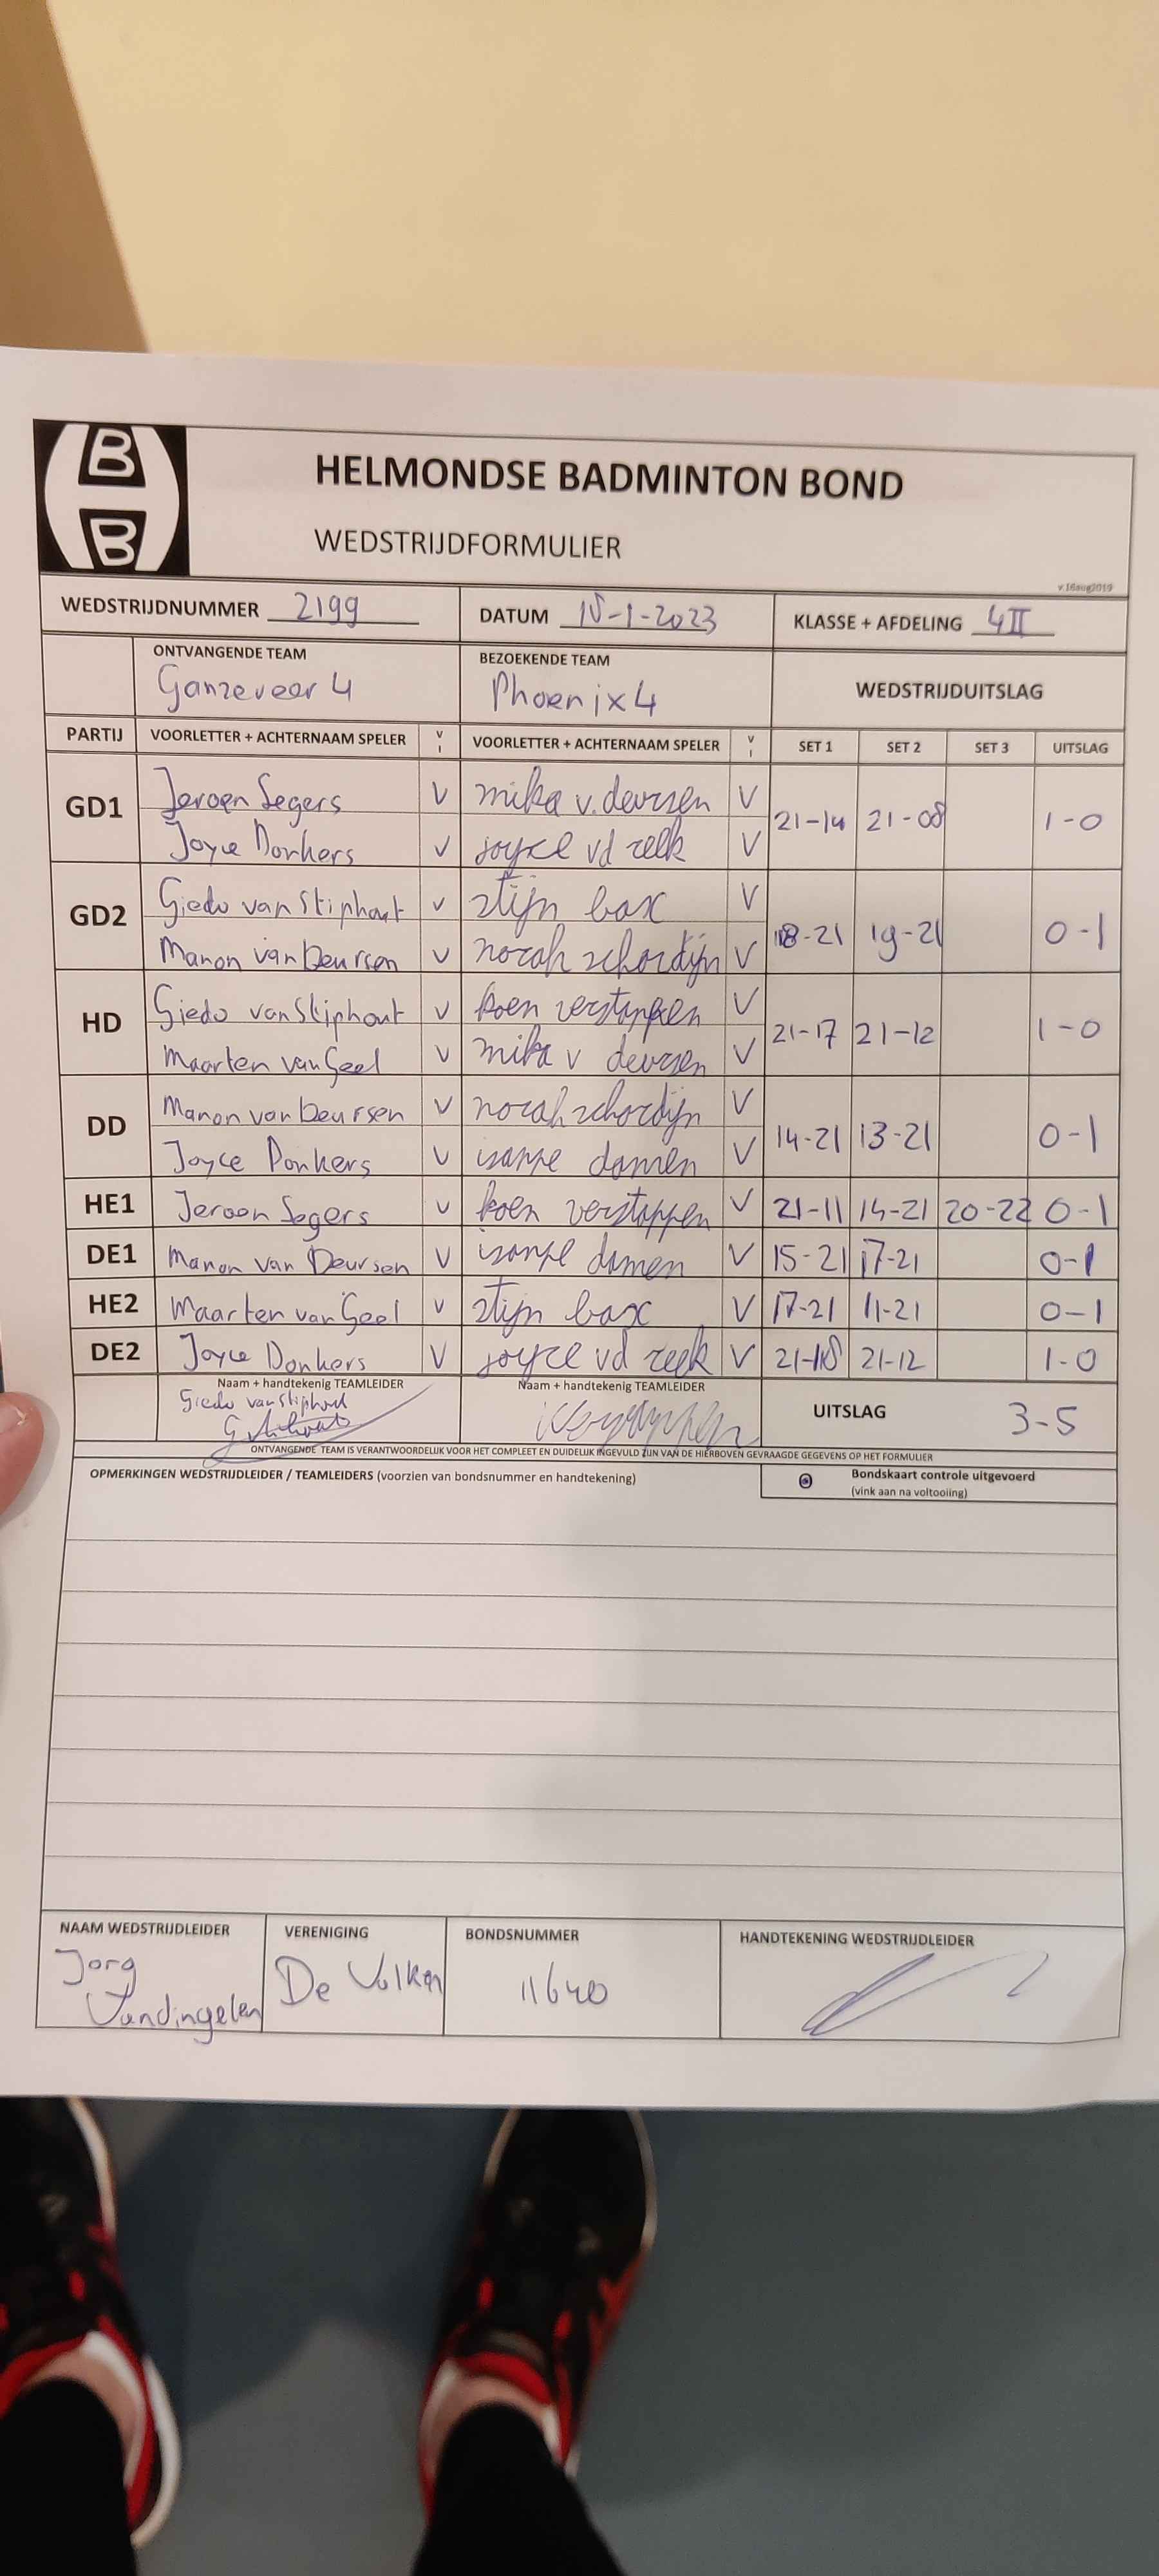 B
B
HELMONDSE BADMINTON BOND
WEDSTRIJDFORMULIER
v.16aug2019
WEDSTRIJDNUMMER 2199 DATUM 15-1-2023 KLASSE + AFDELING 4II
ONTVANGENDE TEAM BEZOEKENDE TEAM WEDSTRIJDUITSLAG
Ganzeveer 4 Phoenix 4
PARTIJ VOORLETTER + ACHTERNAAM SPELER V I VOORLETTER + ACHTERNAAM SPELER V I SET 1 SET 2 SET 3 UITSLAG
GD1 Jeroen Segers V mika v. deursen V 21-14 21-08 1-0
Joyce Donkers V joyce vd reek V
GD2 Giedo van Stiphout V stijn bax V 18-21 19-21 0-1
Manon van Deursen V norah schordijn V
HD Giedo van Stiphout V koen verstappen V 21-17 21-12 1-0
Maarten van Geel V mika v deursen V
DD Manon van Deursen V norah schordijn V 14-21 13-21 0-1
Joyce Donkers V isanne damen V
HE1 Jeroen Segers V koen verstappen V 21-11 14-21 20-22 0-1
DE1 Manon van Deursen V isanne damen V 15-21 17-21 0-1
HE2 Maarten van Geel V stijn bax V 17-21 11-21 0-1
DE2 Joyce Donkers V joyce vd reek V 21-18 21-12 1-0
Naam + handtekenig TEAMLEIDER Naam + handtekenig TEAMLEIDER UITSLAG 3-5
Giedo van Stiphout
ONTVANGENDE TEAM IS VERANTWOORDELIJK VOOR HET COMPLEET EN DUIDELIJK INGEVULD ZIJN VAN DE HIERBOVEN GEVRAAGDE GEGEVENS OP HET FORMULIER
OPMERKINGEN WEDSTRIJDLEIDER / TEAMLEIDERS (voorzien van bondsnummer en handtekening) Bondskaart controle uitgevoerd
(vink aan na voltooiing)
NAAM WEDSTRIJDLEIDER VERENIGING BONDSNUMMER HANDTEKENING WEDSTRIJDLEIDER
Jorg De Valken 11640
Vandingelen